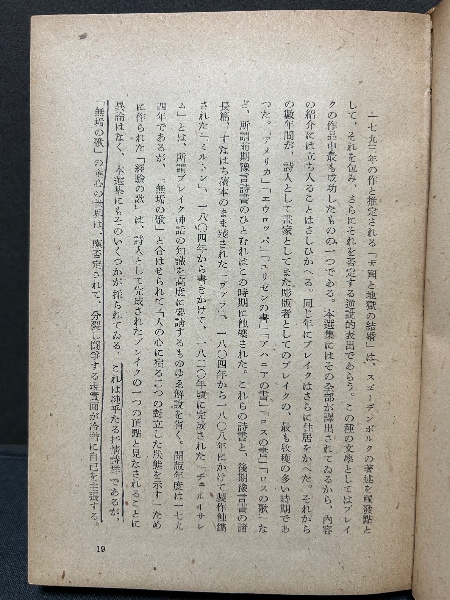 一七九三年の作と推定される「天国と地獄の結婚」は、スエーデンボルクの著述を啓發點と
して、それを包み、さらにそれを否定する逆説的表出であらう。この種の文學としてはブレイ
クの作品中最も成功したものの一つである。本選集にはその全部が譯出されてゐるから、内容
の紹介には立ち入ることはさしひかへる。同じ年にブレイクはさらに住居をかへた。それから
の數年間が、詩人として畫家としてまた彫版者としてのブレイクの、最も收穫の多い時期であ
つた。「アメリカ」「エウロッパ」「ユリゼンの書」「アハニアの書」「ロスの書」「ロスの歌」な
ど、所謂前期豫言詩書のひとむれはこの時期に蝕鐫された。これらの詩書と、後期豫言書の諸
長篇、すなはち稿本のまま遺された「ヴァラ」、一八〇四年から一八〇八年にかけて製作蝕鐫
された「ミルトン」、一八〇四年から書きかけて、一八二〇年頃に完成された「ヂェルサレ
ム」とは、所謂ブレイク神話の知識を高度に要請するものゆゑ解説を省く。開版年度は一七九
四年であるが、「無垢の歌」と合はせられて「人の心に宿る二つの對立した狀態を示す」ため
に作られた「經驗の歌」は、詩人として完成されたブレイクの一つの頂點と見なされることに
異論はなく、本選集にもそのいくつかが採られてゐる。これは純乎たる抒情詩集であるが、
「無垢の歌」の童心の世界は、一應否定されて、分裂し鬪爭する諸靈面が冷酷に自己を主張する。
19